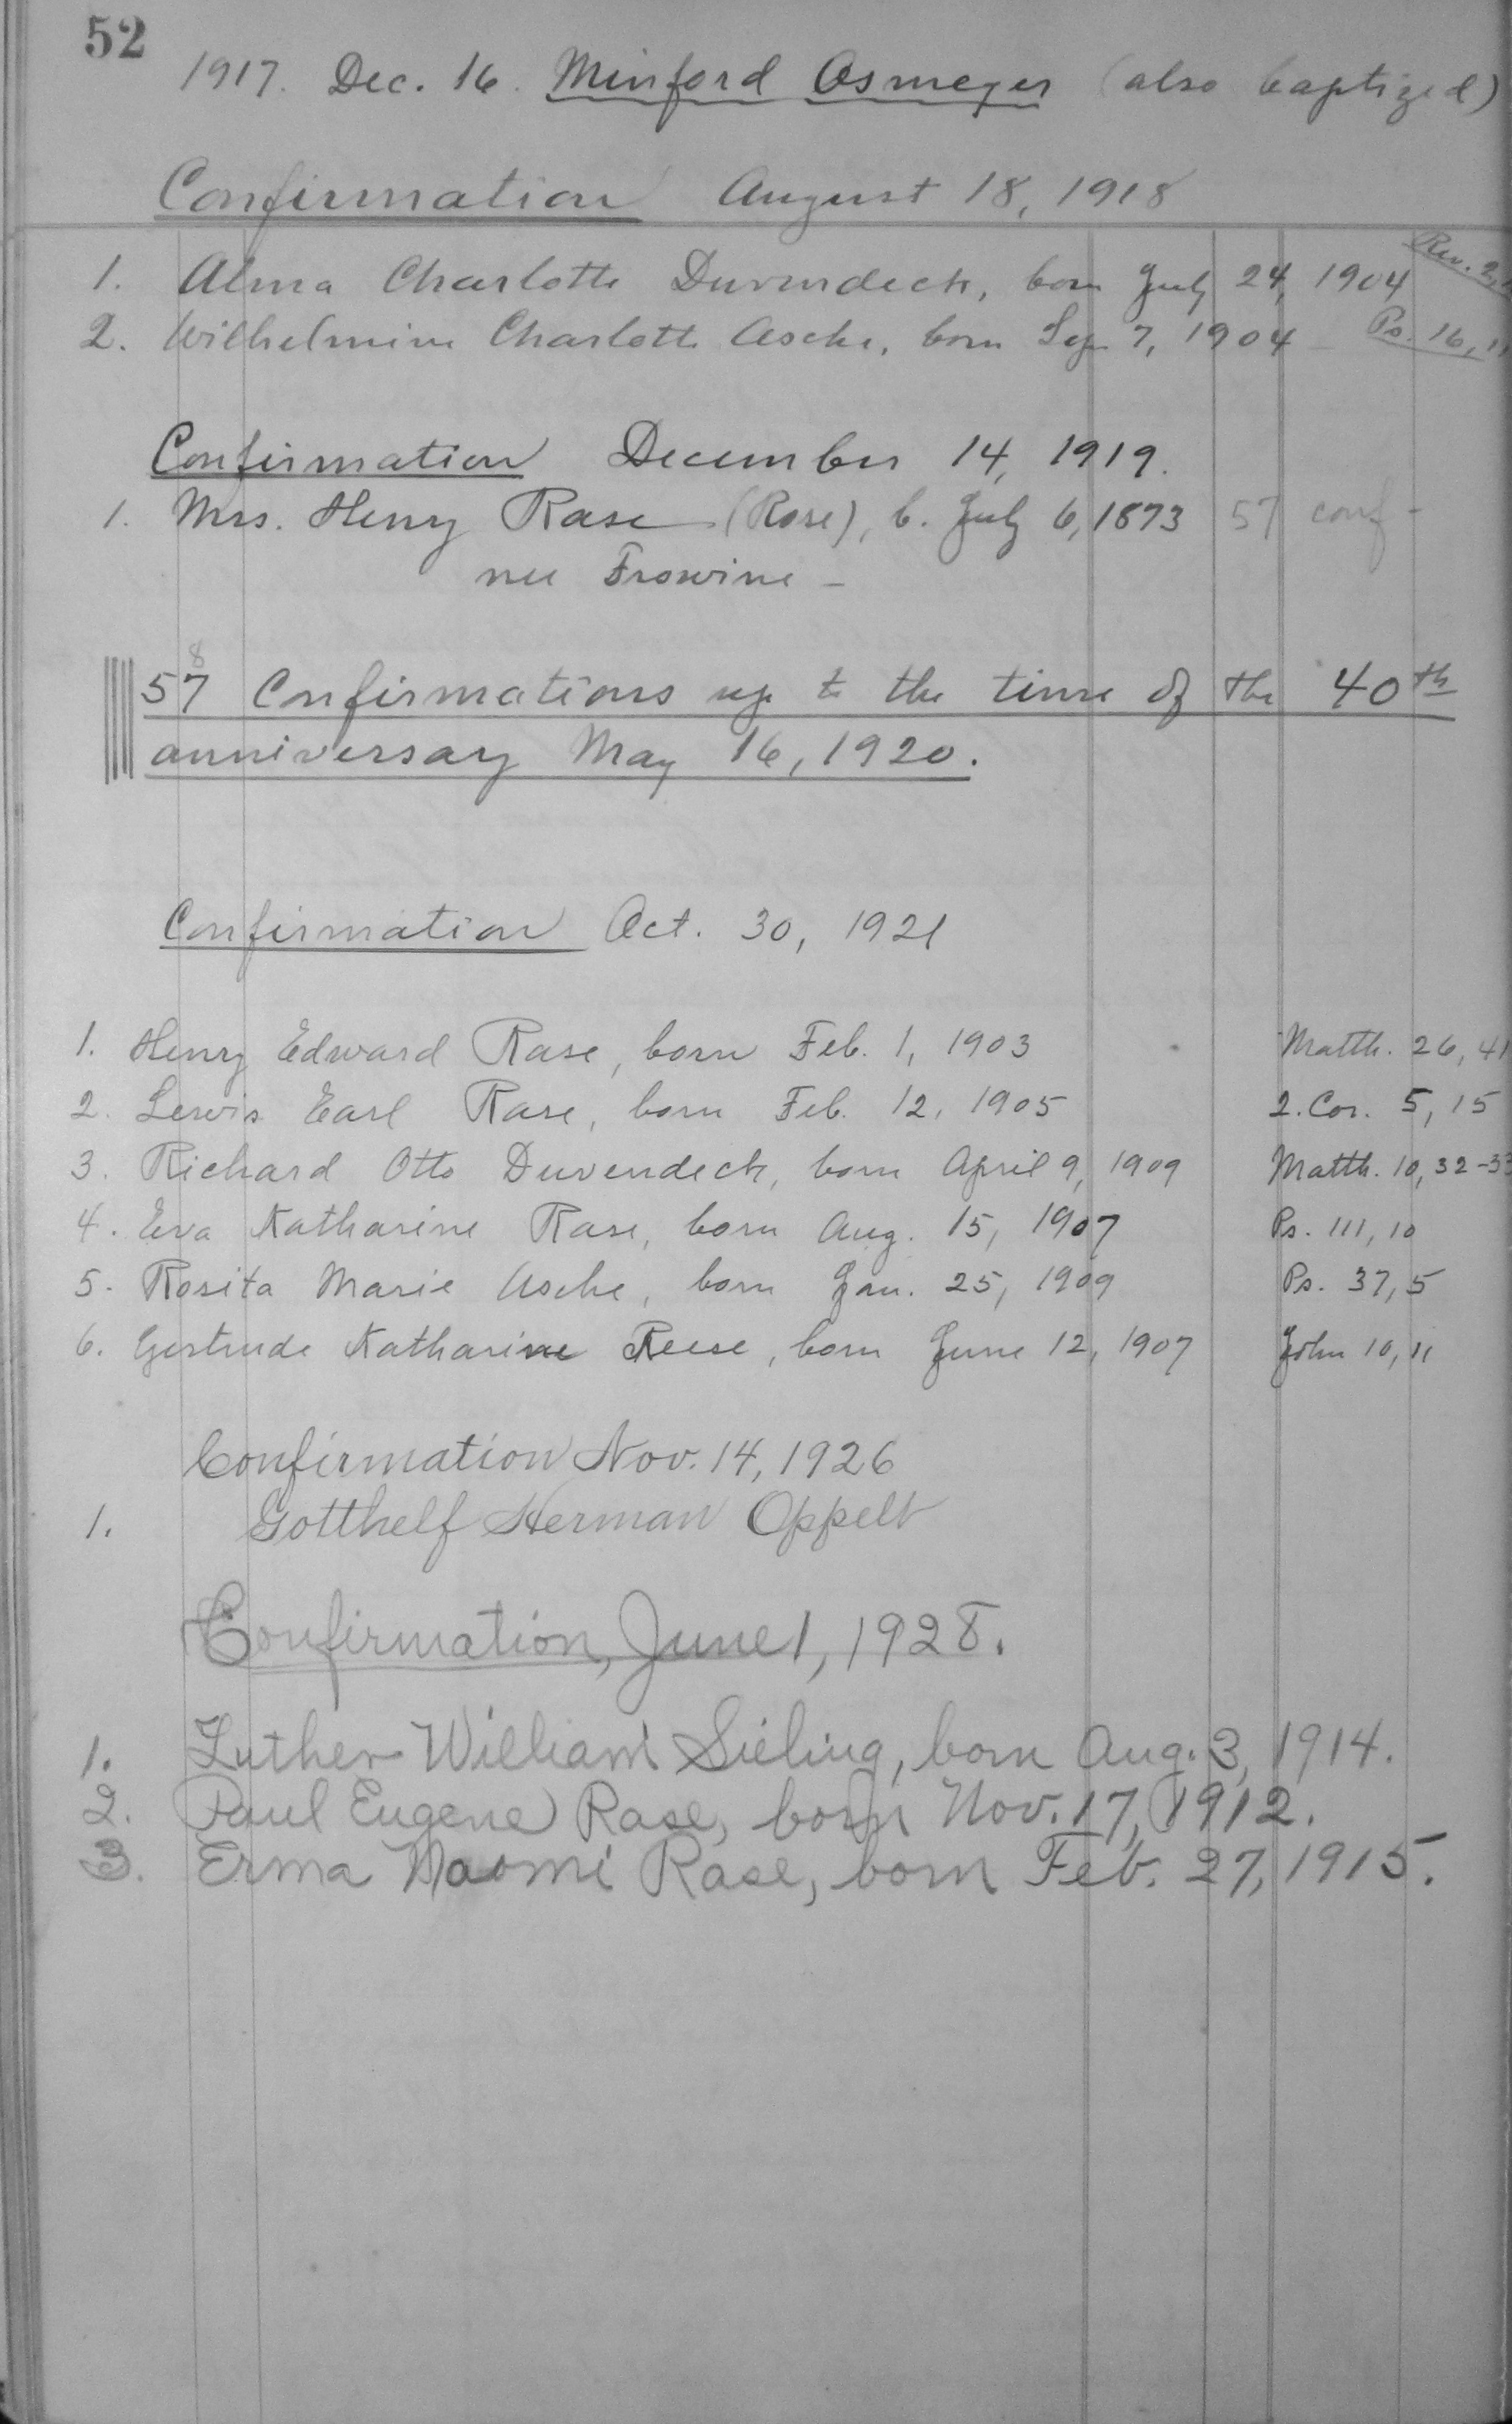 52
1917. Dec. 16. Minford Osmeyer (also baptized)
Confirmation August 18, 1918
1. Alma Charlotte Duvendeck, born July 24, 1904 Rev. 2,
2. Wilhelmine Charlotte Asche, born Sep 7, 1904 – Ps. 16, 11
Confirmation December 14, 1919.
1. Mrs. Henry Rase (Rose), b. July 6, 1873 57 conf –
nee Frowine –
8
57 Confirmations up to the time of the 40th
anniversary May 16, 1920.
Confirmation Oct. 30, 1921
1. Henry Edward Rase, born Feb. 1, 1903 Matth. 26, 41
2. Lewis Earl Rase, born Feb. 12, 1905 2. Cor. 5, 15
3. Richard Otto Duvendeck, born April 9, 1909 Matth. 10, 32-33
4. Eva Katharine Rase, born Aug. 15, 1907 Ps. 111, 10
5. Rosita Marie Asche, born Jan. 25, 1909 Ps. 37, 5
6. Gertrude Katharine Reese, born June 12, 1907 John 10, 11
Confirmation Nov. 14, 1926
1. Gotthelf Herman Oppelt
Confirmation, June 1, 1928.
1. Luther William Sieling, born Aug. 3, 1914.
2. Paul Eugene Rase, born Nov. 17, 1912.
3. Erma Naomi Rase, born Feb. 27, 1915.